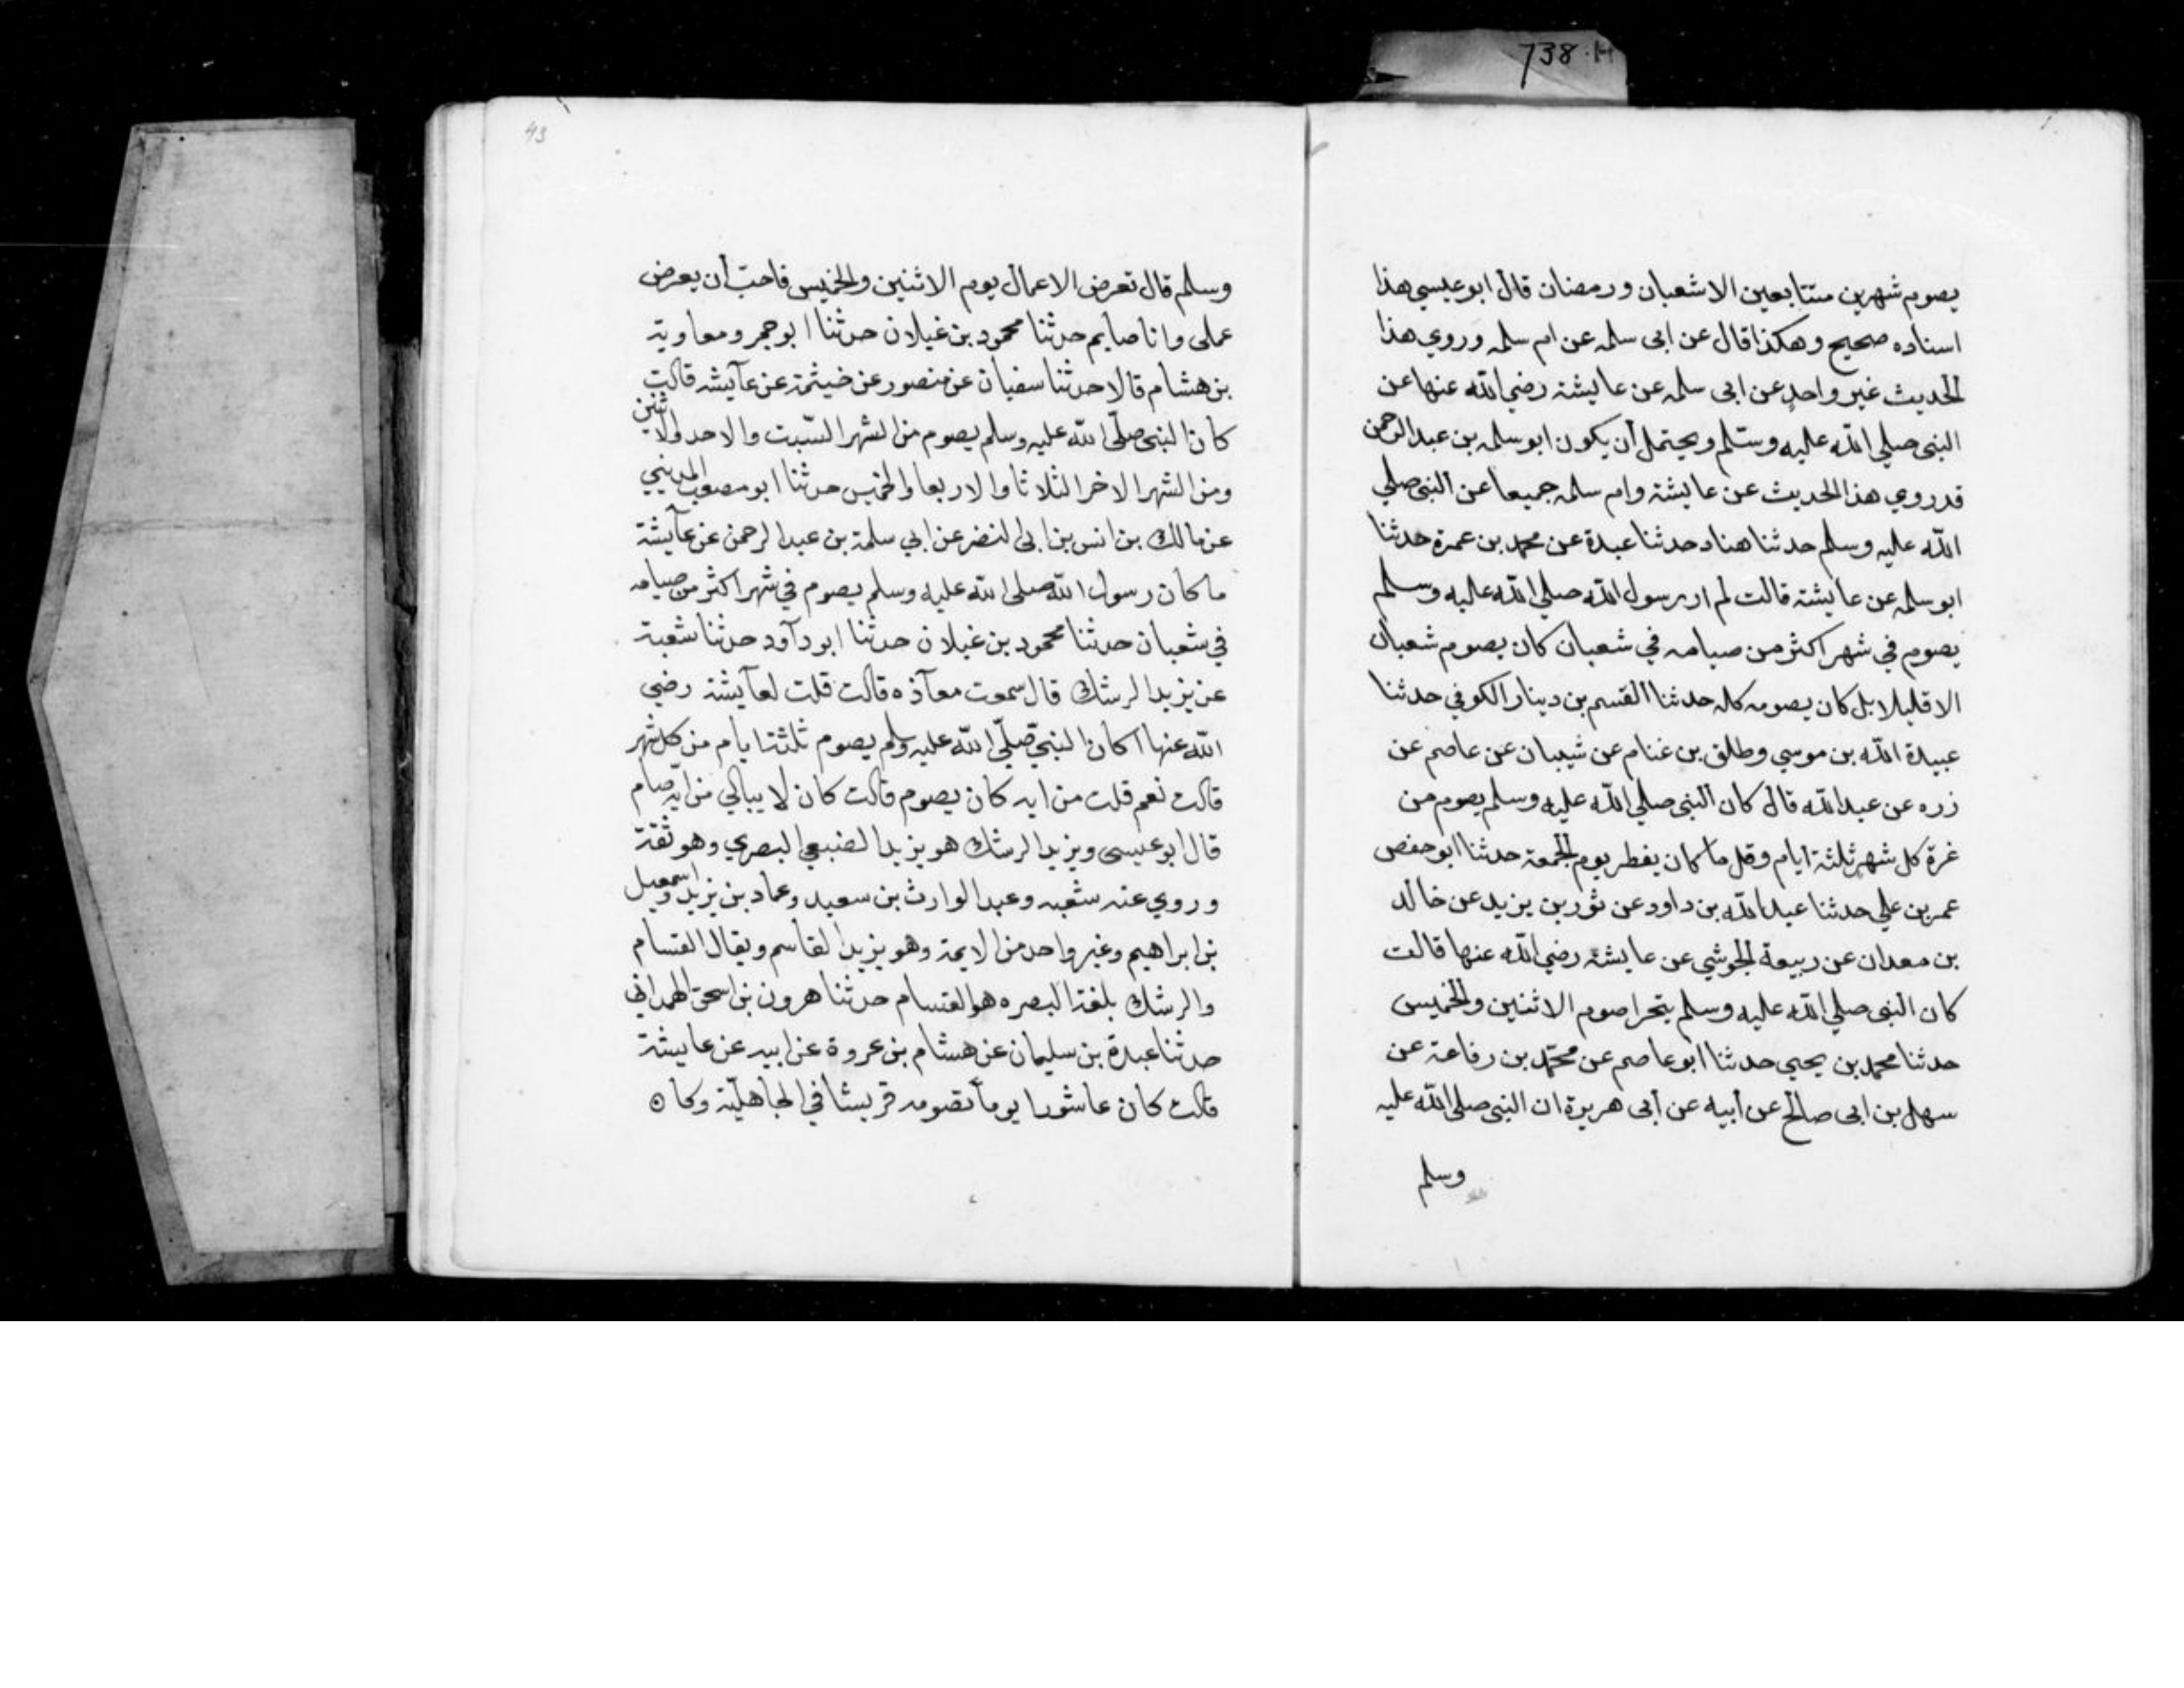 738.H
يصوم شهرين متتابعين الا شعبان ورمضان قال ابو عيسي هذا
اسناده صحيح وهكذا قال عن ابى سلمه عن ام سلمه وروي هذا
الحديث غير واحد عن ابى سلمه عن عايشة رضي الله عنها عن
النبى صلي الله عليه وسلم ويحتمل أن يكون ابو سلمه بن عبد الرحمن
قد روي هذا الحديث عن عايشة وام سلمه جميعا عن النبى صلي
الله عليه وسلم حدثنا هناد حدثنا عبدة عن محمد بن عمرة حدثنا
ابو سلمه عن عايشة قالت لم ار رسول الله صلي الله عليه وسلم
يصوم في شهر اكثر من صيامه في شعبان كان يصوم شعبان
الا قليلا بل كان يصومه كله حدثنا القسم بن دينار الكوفي حدثنا
عبيدة الله بن موسي وطلق بن غنام عن شيبان عن عاصم عن
زره عن عبد الله قال كان النبى صلي الله عليه وسلم يصوم من
غرة كل شهر ثلثة ايام وقل ما كان يفطر يوم الجمعة حدثنا ابو حفص
عمر بن علي حدثنا عبد الله بن داود عن ثور بن يزيد عن خالد
بن معدان عن ربيعة الجوشي عن عايشة رضي الله عنها قالت
كان النبى صلي الله عليه وسلم يتحرا صوم الاثنين والخميس
حدثنا محمد بن يحيي حدثنا ابو عاصم عن محمّد بن رفاعة عن
سهل بن ابى صالح عن أبيه عن أبى هريرة ان النبى صلى الله عليه
وسلم
43
وسلم قال تعرض الاعمال يوم الاثنين والخميس فاحبّ أن يعرض
عملى وانا صايم حدثنا محمود بن غيلان حدثنا ابو حمر ومعاوية
بن هشام قالا حدثنا سفيان عن منصور عن خيثمة عن عآيشه قالت
كان النبى صلّى الله عليه وسلم يصوم من الشهر السّبت والاحد والاثنين
ومن الشهر الاخر الثلاثا والاربعا والخميس حدثنا ابو مصعب المديني
عن مالك بن انس بن ابى النضر عن ابي سلمة بن عبد الرحمن عن عآيشة
ما كان رسول الله صلى الله عليه وسلم يصوم في شهر اكثر من صيامه
في شعبان حدثنا محمود بن غيلان حدثنا ابو دآود حدثنا شعبة
عن يزيد الرشك قال سمعت معآذه قالت قلت لعآيشة رضي
الله عنها اكان النبي صلّى الله عليه وسلم يصوم ثلثة ايام من كل شهر
قالت نعم قلت من ايه كان يصوم قالت كان لا يبالي من ايّه صام
قال ابو عيسى ويزيد الرشك هو يزيد الضبعي البصري وهو ثقة
وروي عنه شعبه وعبد الوارث بن سعيد وعماد بن يزيد واسمعيل
بن ابراهيم وغير واحد من الايمة وهو يزيد القاسم ويقال القسام
والرشك بلغة البصره هو القسام حدثنا هرون بن اسحق الهمدانى
حدثنا عبدة بن سليمان عن هشام بن عروة عن ابيه عن عايشة
قالت كان عاشورا يوماً تصومه قريشا في الجاهليّة وكان